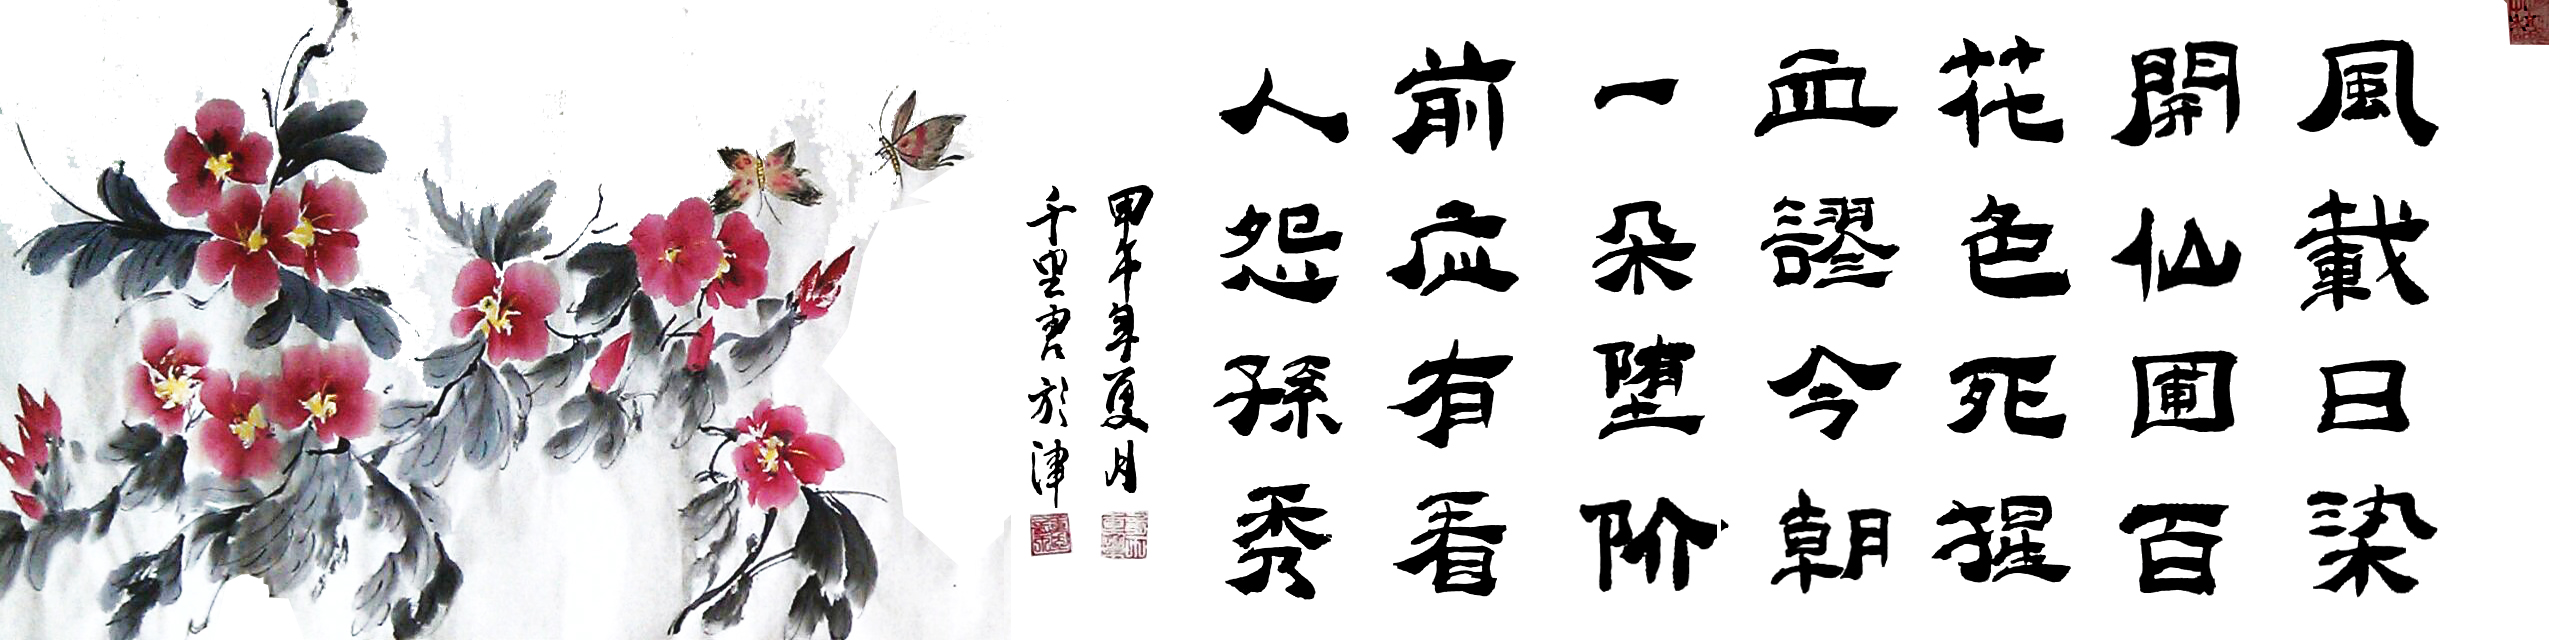 風載日染
開仙圃百
花色死猩
血謬今朝
一朵堕阶
前应有看
人怨孫秀
甲午年夏月
千里君於津